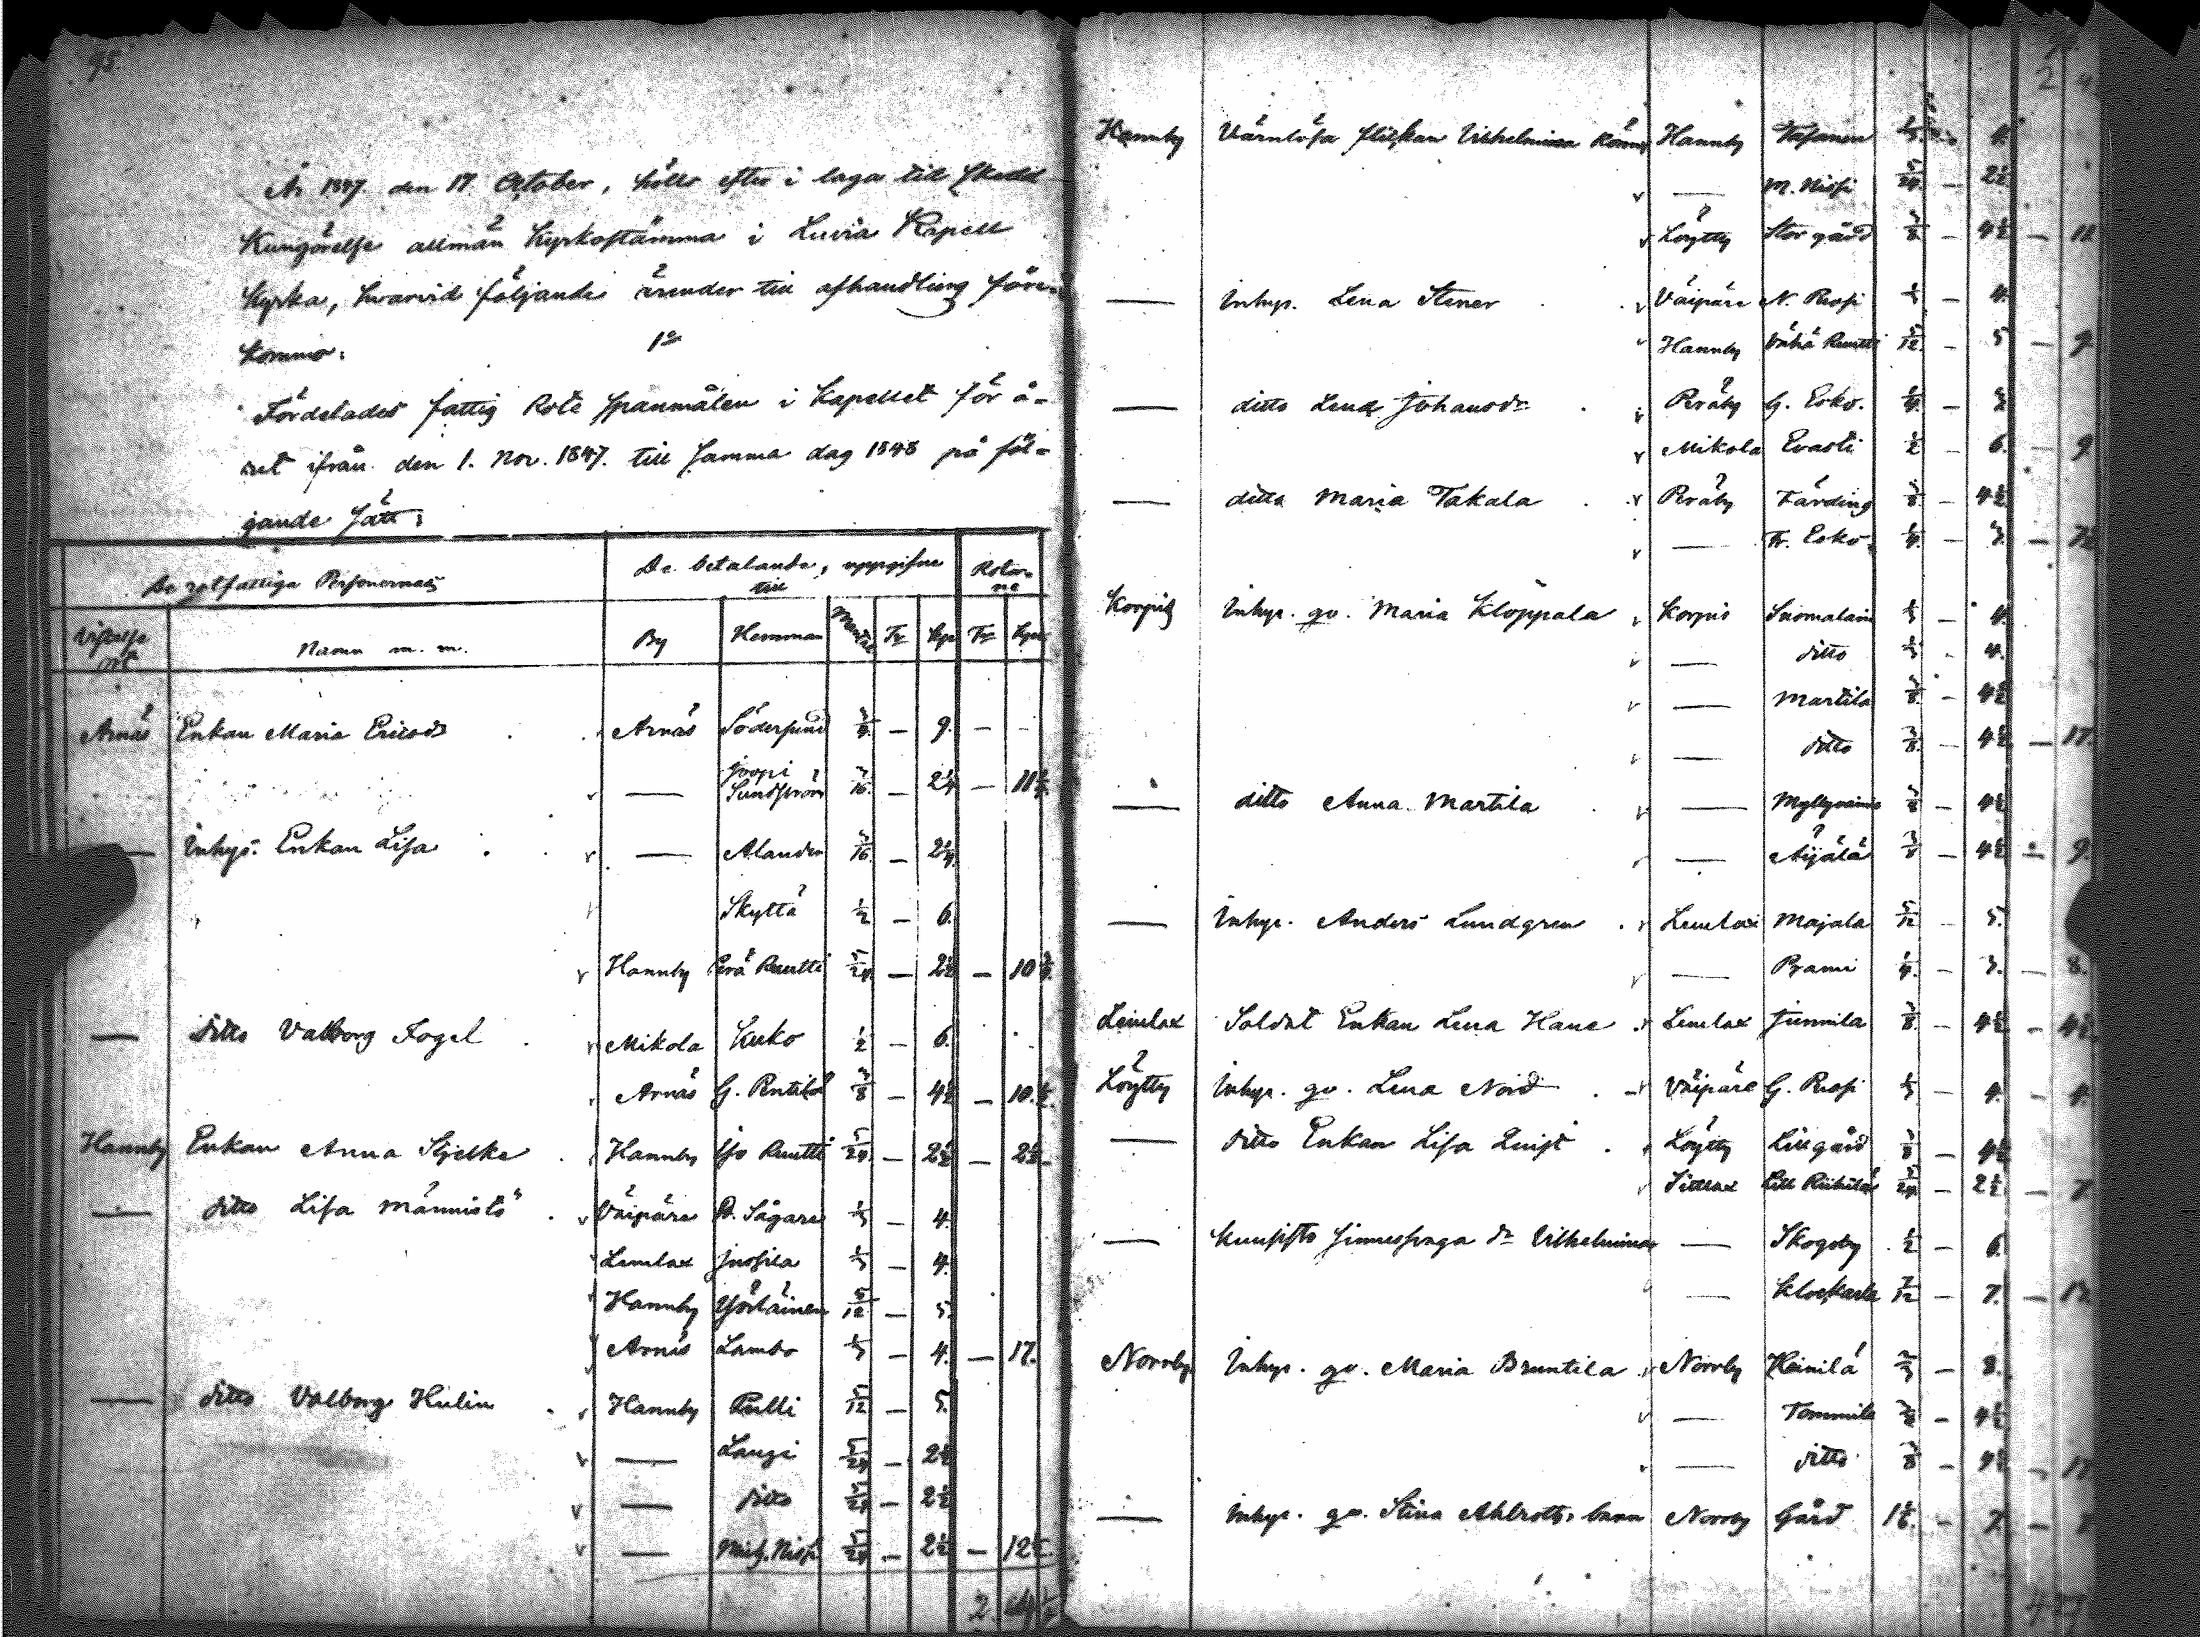 95.
År 1847. den 17 October, hölls efter i laga tid skedd
Kungörelse allmän Kyrkostämma i Luvia Kapell
Kyrka, hvarvid följande ärender till afhandling före-
kommo:
1o
Fördelades fattig Rote spanmålen i Kapellet för å-
ret ifrån den 1. Nov. 1847. till samma dag 1848 på föl-
gande sätt:
De rotfattiga Personernas De betalande, uppgifne till Rotarne
Vistelse ort Namn m. m. By Hemman Mantal Tr Kpr Tr Kpr
Arnäs Enkan Maria Ericsdr Arnäs Söderlund 3/4 — 9. — -
— Joopi Sundström 3/16 — 2 1/4 — 11 1/4
— Inhys. Enkan Lisa — Alander 3/16 — 2 1/4
Skyttä 1/2 — 6.
Hannby Perä Runtti 5/24 — 2 1/2 — 10 3/4
— ditto Valborg Fogel Mikola Kuko 1/2 — 6.
Arnäs G. Pentilä 3/8 — 4 1/2 — 10 1/2
Hannby Enkan Anna Stjelke Hannby Iso Runtti 5/24 — 2 1/2 — 2 1/2
— ditto Lisa Männistö Väipäre P. Sågare 1/3 — 4.
Lemlax Jussila 1/3 — 4.
Hannby Yörläinen 5/12 — 5.
Arnäs Lambo 1/3 — 4. — 17.
— ditto Valborg Hulin Hannby Pulli 5/12 — 5.
— Laugi 5/24 — 2 1/2
— ditto 5/24 — 2 1/2
— Mich. Nissi 5/24 — 2 1/2 — 12 1/2
2.
Hannby Värnlösa flickan Vilhelmina Hannby 1/3 4.
— M. Nissi 5/24 — 2 1/2
Löytty Storgård 3/8 — 4 1/2 — 11
— Inhys. Lena Stener Väipäre N. Prosi 1/3 — 4.
Hannby Vähä Runtti 5/12 — 5 — 9.
— ditto Lena Johansdr Peräby G. Esko. 1/4 — 3
Mikola Evasti 1/2 — 6. — 9
— ditto Maria Takala Peräby Färding 3/8 — 4 1/2
— Fr. Esko. 1/4 — 3. — 7 1/2
Korpis Inhys. qv. Maria Klöppala Korpis Suomalain 1/3 — 4.
— ditto 1/3 - 4.
— Martila 3/8 — 4 1/2
— ditto 3/8 — 4 1/2 — 17.
— ditto Anna Martila — Myllyvainio 3/8 — 4 1/2
— Äijälä 3/8 — 4 1/2 — 9.
— Inhys. Anders Lundgren Lemlax Majala 5/12 — 5.
— Prami 1/4 — 3. — 8.
Lemlax Soldat Enkan Lena Hane Lemlax Junnila 3/8 — 4 1/2 — 4 1/2
Löytty Inhys. qv. Lena Noid Väipäre G. Prosi 1/3 — 4. — 4
— ditto Enkan Lisa Quist Löytty Lillgård 3/8 — 4 1/2
Sittlax Lill Riihilä 5/24 — 2 1/2 — 7
— dr Vilhelmina — Skogsby 1/2 — 6.
— Klockarla 7/12 — 7. —
Norrby Inhys. qv. Maria Bruntila Norrby Heinilä 2/3 — 8.
— Tommila 3/8 — 4 1/2
— ditto 3/8 — 4 1/2 — 17
— Inhys. qv. Stina Ahlroths barn Norrby Gård — 7 —